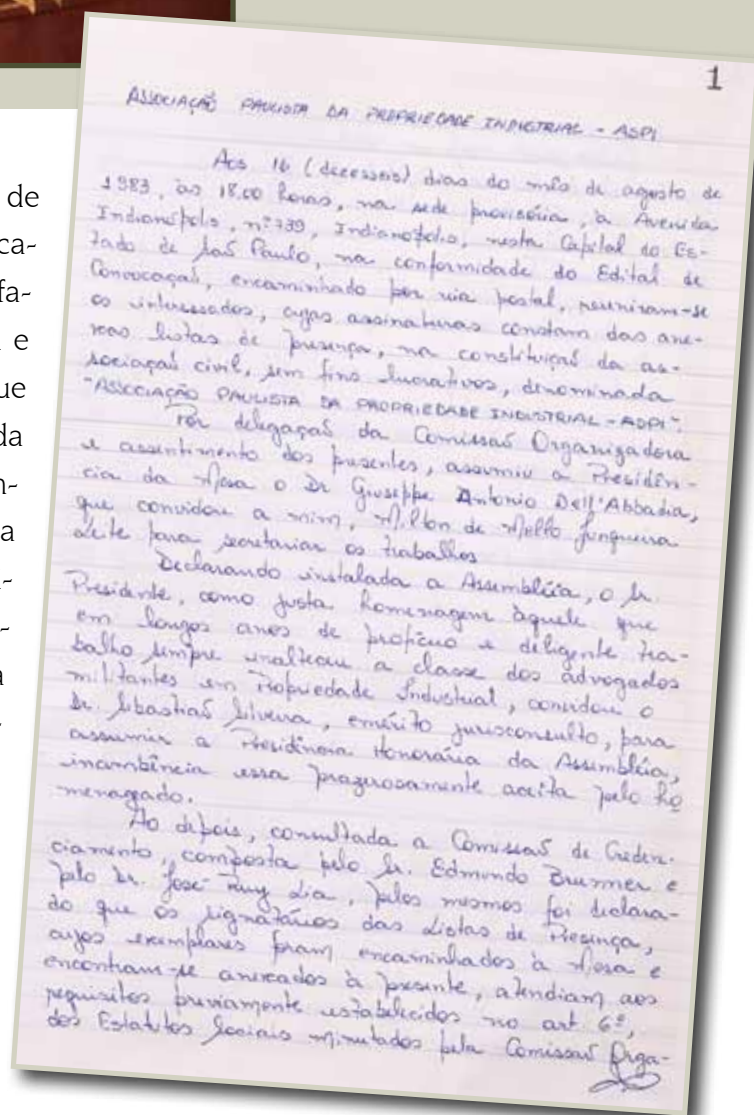 de
ca-
fa-
e
que
da
n-
a
-
-
a
1
ASSOCIAÇÃO PAULISTA DA PROPRIEDADE INDUSTRIAL - ASPI
Aos 16 (dezesseis) dias do mês de agosto de
1983, às 18.00 horas, na sede provisória, à Avenida
Indianópolis, nº 739, Indianópolis, nesta Capital do Es-
tado de São Paulo, na conformidade do Edital de
Convocação, encaminhado por via postal, reuniram-se
os interessados, cujas assinaturas constam das ane-
xas listas de presença, na constituição da as-
sociação civil, sem fins lucrativos, denominada
"ASSOCIAÇÃO PAULISTA DA PROPRIEDADE INDUSTRIAL - ASPI".
Por delegação da Comissão Organizadora
e assentimento dos presentes, assumiu a Presidên-
cia da Mesa o Dr Giuseppe Antonio Dell'Abbadia,
que convidou a mim, Milton de Mello Junqueira
Leite para secretariar os trabalhos
Declarando instalada a Assembléia, o Sr.
Presidente, como justa homenagem àquele que
em longos anos de profícuo e diligente tra-
balho sempre enalteceu a classe dos advogados
militantes em Propriedade Industrial, convidou o
Dr. Sebastião Silveira, emérito jurisconsulto, para
assumir a Presidência Honorária da Assembléia,
incumbência essa prazerosamente aceita pelo ho
menageado.
Ao depois, consultada a Comissão de Creden-
ciamento, composta pelo Sr. Edmundo Brunner e
pelo Dr. José Ruy, pelos mesmos foi declara-
do que os signatários das Listas de Presença,
cujos exemplares foram encaminhados à Mesa e
encontram-se anexados à presente, atendiam aos
requisitos previamente estabelecidos no art 6º,
dos Estatutos Sociais minutados pela Comissão Orga-